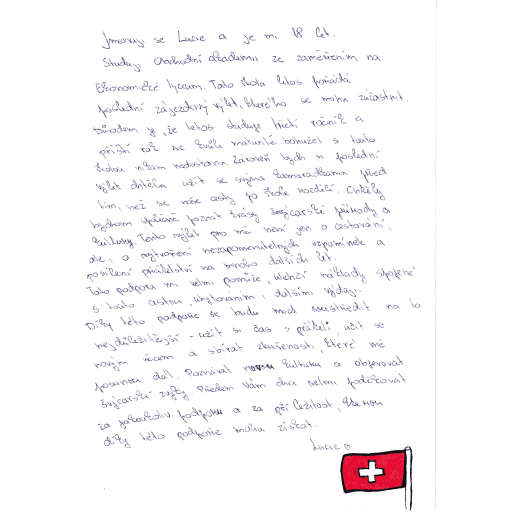 Jmenuji se Lucie a je mi 18 let.
Studuji Obchodní akademii se zaměřením na
Ekonomické lyceum. Tato škola letos pořádá
poslední zájezdový výlet, kterého se mohu zúčastnit.
Důvodem je, že letos studuje třetí ročník a
příští rok se kvůli maturitě bohužel s touto
školou nikam nedostanu. Zároveň bych si poslední
výlet chtěla užít se svýma kamarádkama před
tím, než se naše cesty po škole rozdělí. Chtěly
bychom společně poznat krásy švýcarské přírody a
kultury. Tento výlet pro mě není jen o cestování,
ale i o vytvoření nezapomenutelných vzpomínek a
posílení přátelství na mnoho dalších let.
Tato podpora mi velmi pomůže, ulehčí náklady spojené
s touto cestou, ubytováním i dalšími výdaji.
Díky této podpoře se budu moci soustředit na to
nejdůležitější - užít si čas s přáteli, učit se
novým věcem a sbírat zkušenosti, které mě
posunou dál. Poznávat novou kulturu a objevovat
švýcarské zvyky. Předem Vám chci velmi poděkovat
za jakoukoliv podporu a za příležitost, kterou
díky této podpoře mohu získat.
Lucie